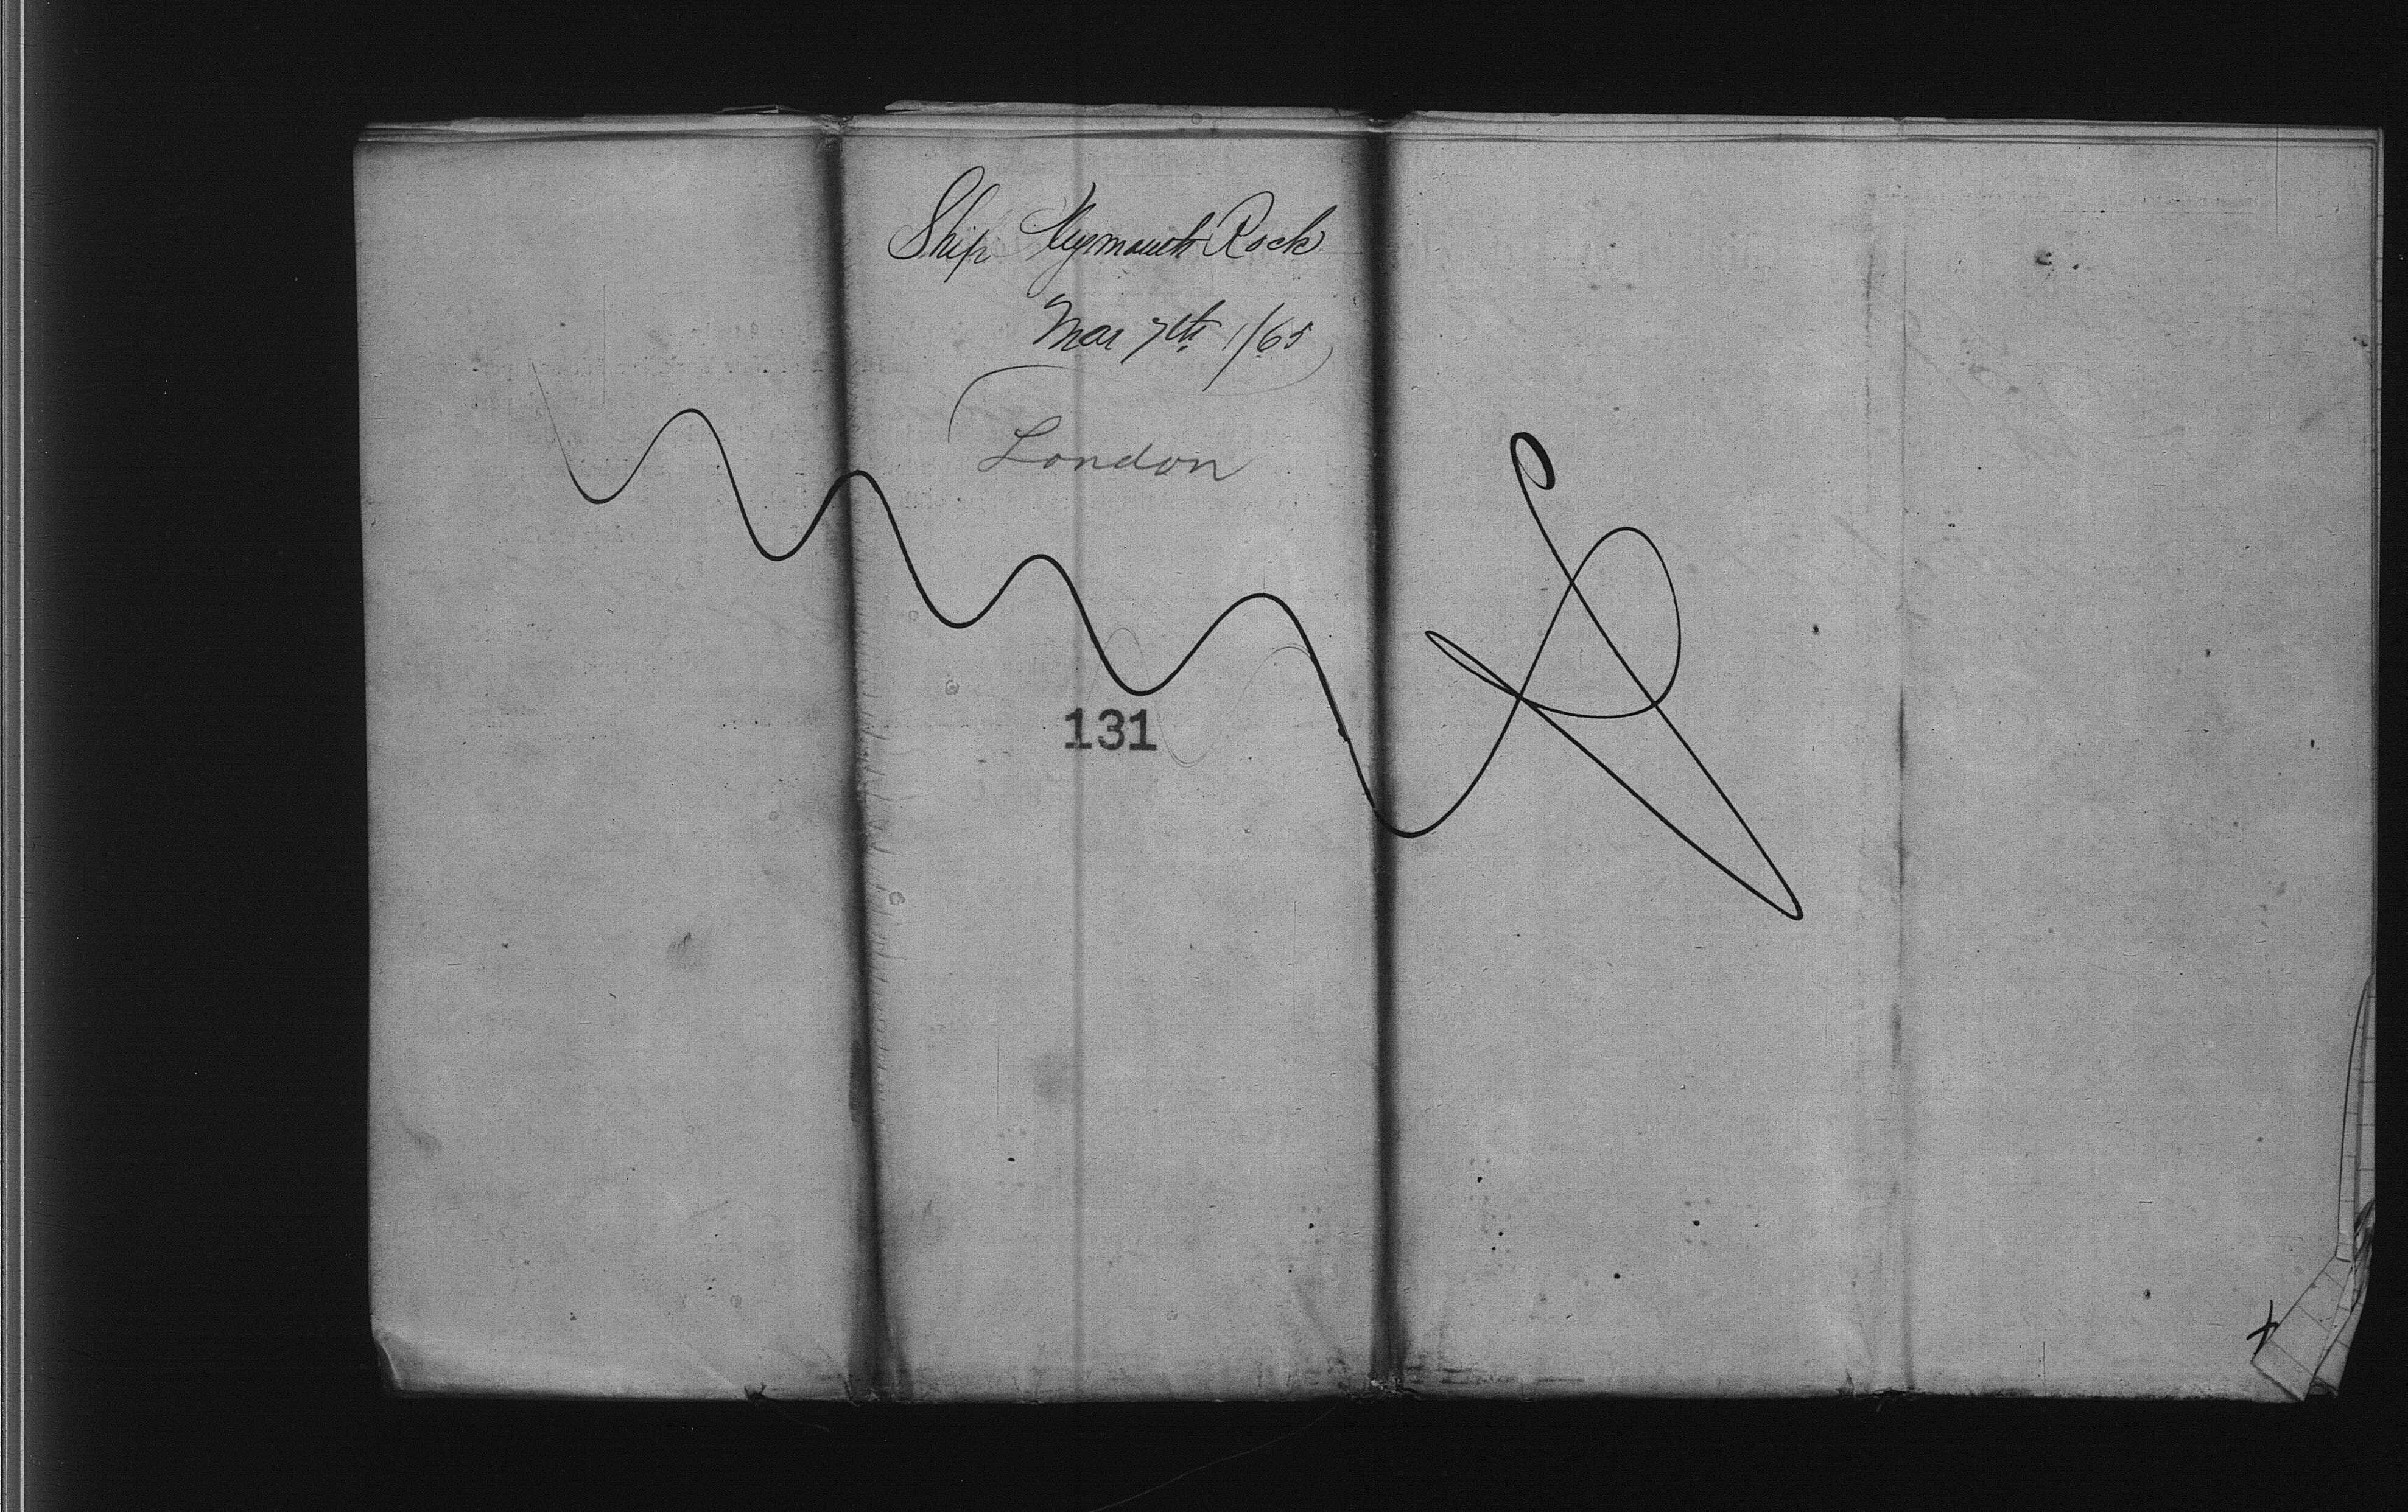 Ship Plymouth Rock
Mar 7th 1/65
London
131